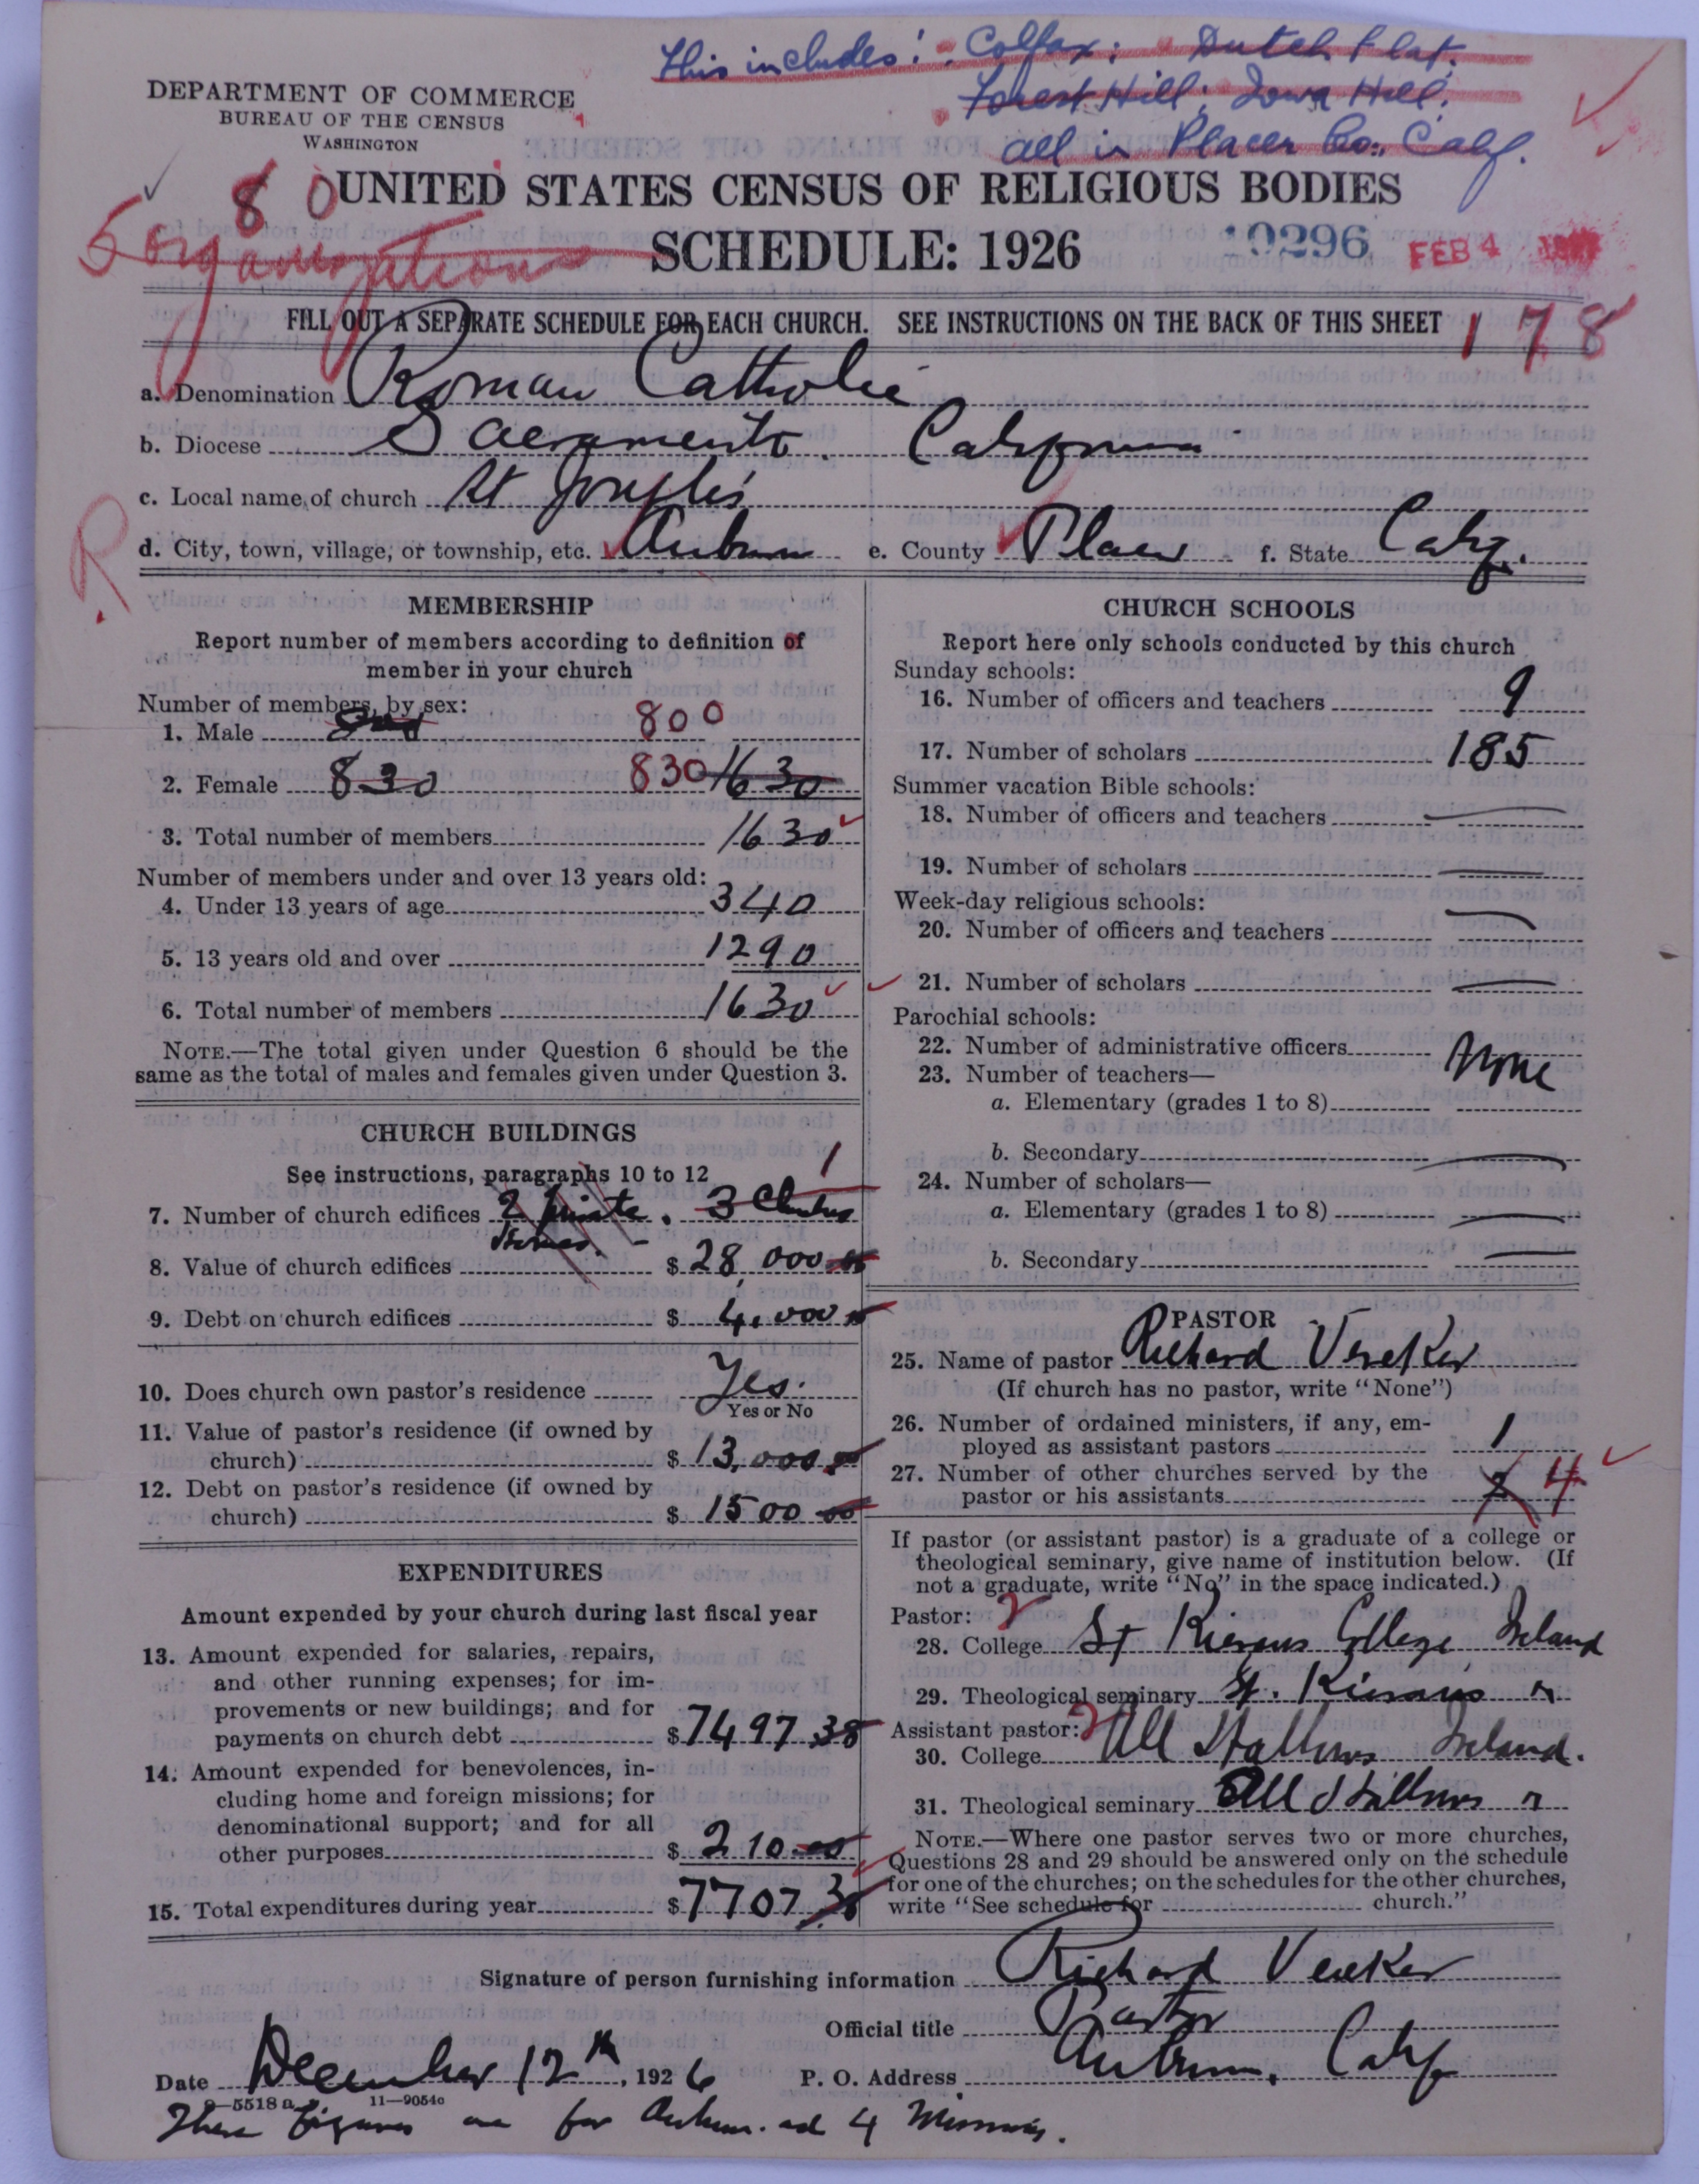 This includes: Colfax: Dutch Flat.
Forest Hill: Iowa Hill.
all in Placer Co., Calif.
DEPARTMENT OF COMMERCE
BUREAU OF THE CENSUS
WASHINGTON
8 0
UNITED STATES CENSUS OF RELIGIOUS BODIES
5 organizations
SCHEDULE: 1926
FEB 4
FILL OUT A SEPARATE SCHEDULE FOR EACH CHURCH. SEE INSTRUCTIONS ON THE BACK OF THIS SHEET
178
a. Denomination Roman Catholic
b. Diocese Sacramento. California
c. Local name of church St Joseph's
R
d. City, town, village, or township, etc. Auburn e. County Placer f. State Calif.
MEMBERSHIP
Report number of members according to definition of
member in your church
Number of members, by sex:
1. Male 800
2. Female 830 830 1630
3. Total number of members 1630
Number of members under and over 13 years old:
4. Under 13 years of age 340
5. 13 years old and over 1290
6. Total number of members 1630
NOTE.—The total given under Question 6 should be the
same as the total of males and females given under Question 3.
CHURCH BUILDINGS
See instructions, paragraphs 10 to 12
1
7. Number of church edifices 2 private homes. 3 Churches
8. Value of church edifices $ 28,000 00
9. Debt on church edifices $ 4,000 00
10. Does church own pastor's residence Yes.
Yes or No
11. Value of pastor's residence (if owned by
church) $ 13,000 00
12. Debt on pastor's residence (if owned by
church) $ 1500 00
EXPENDITURES
Amount expended by your church during last fiscal year
13. Amount expended for salaries, repairs,
and other running expenses; for im-
provements or new buildings; and for
payments on church debt $ 7497.38
14. Amount expended for benevolences, in-
cluding home and foreign missions; for
denominational support; and for all
other purposes $ 210 00
15. Total expenditures during year $ 7707.38
CHURCH SCHOOLS
Report here only schools conducted by this church
Sunday schools:
16. Number of officers and teachers 9
17. Number of scholars 185
Summer vacation Bible schools:
18. Number of officers and teachers —
19. Number of scholars —
Week-day religious schools:
20. Number of officers and teachers —
21. Number of scholars —
Parochial schools:
22. Number of administrative officers None
23. Number of teachers—
a. Elementary (grades 1 to 8)
b. Secondary —
24. Number of scholars—
a. Elementary (grades 1 to 8) —
b. Secondary —
PASTOR
25. Name of pastor Richard Vereker
(If church has no pastor, write "None")
26. Number of ordained ministers, if any, em-
ployed as assistant pastors 1
27. Number of other churches served by the
pastor or his assistants 4
If pastor (or assistant pastor) is a graduate of a college or
theological seminary, give name of institution below. (If
not a graduate, write "No" in the space indicated.)
Pastor:
28. College St Kierans College, Ireland
29. Theological seminary St. Kierans "
Assistant pastor:
30. College All Hallows Ireland.
31. Theological seminary All Hallows "
NOTE.—Where one pastor serves two or more churches,
Questions 28 and 29 should be answered only on the schedule
for one of the churches; on the schedules for the other churches,
write "See schedule for church."
Signature of person furnishing information Richard Vereker
Official title Pastor
Date December 12th, 1926 P. O. Address Auburn, Calif
11—9054c
These figures are for Auburn and 4 Missions.